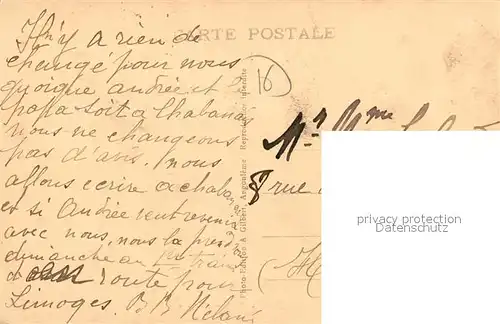 Il n'y a rien de
changé pour nous
quoique andrée et le
papa soit a Chabanais
nous ne changeons
pas d'avis. nous
allons ecrire a chabanais
et si Andrée veut revenir
avec nous, nous la pres
dimanche au train
route pour
Limoges. Mélanie
CARTE POSTALE
16
Mr Mme
8 rue
Photo-Edition A. Gilbert, Angoulême Reproduction Interdite
privacy protection
Datenschutz